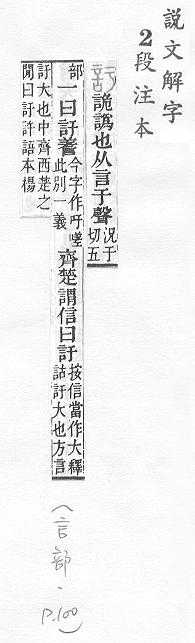 說文解字
2段注本
詭譌也从言于聲況于切五
部一曰訏 今字作吁嗟此別一義齊楚謂信曰訏按信當作大釋詁訏大也方言
訏大也中齊西楚之閒曰訏許語本楊
(言部、P.100)